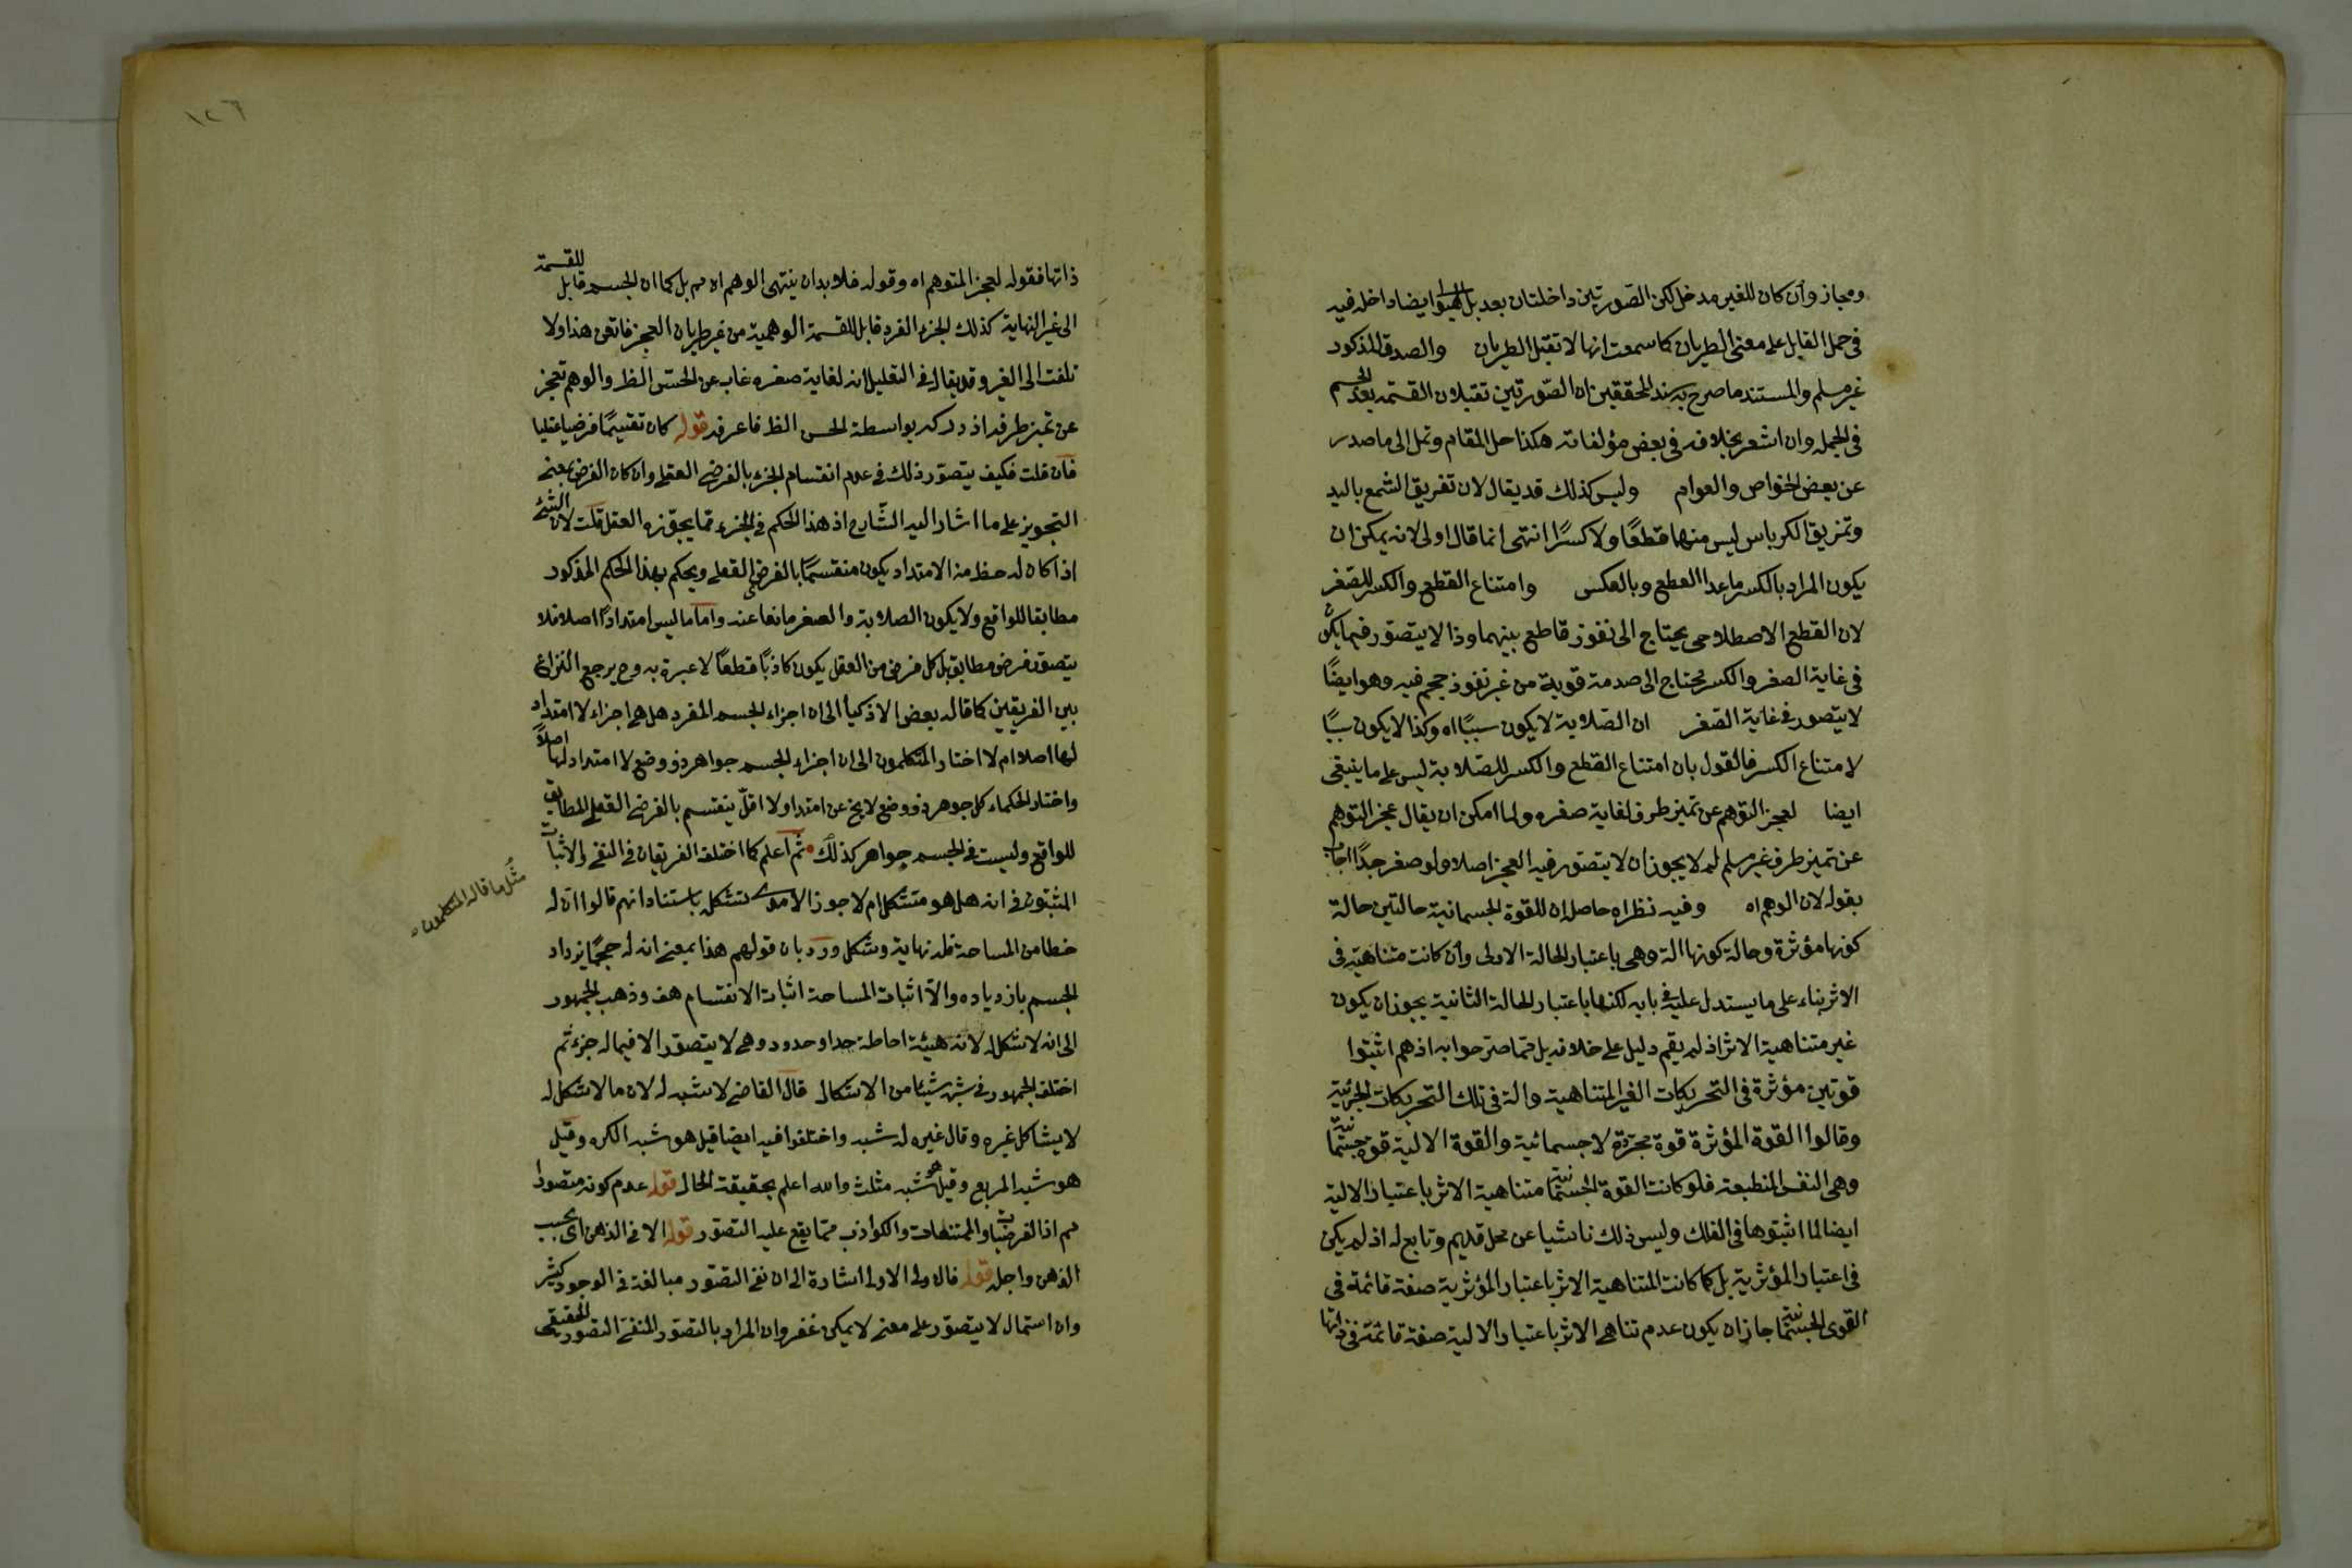 ومجاز وأن كان للغير مدخل لكن الصورتين داخلتان بعد بل الهيولى ايضا داخلة فيه
فى حمل القابل على معنى الطريان كما سمعت انها لا تقبل الطريان والصدق المذكور
غير مسلم والمستند ما صرح به سند المحققين ان الصورتين تقبلان القسمة بعد الجسم
فى الجملة وان اشعر بخلافه فى بعض مؤلفاته هكذا حل المقام وتمل الى ما صدر
عن بعض الخواص والعوام وليس كذلك قد يقال لان تفريق الشمع باليد
وتمزيق الكرباس ليس منهما قطعًا ولا كسرًا انتهى انما قال اولى لانه يمكن ان
يكون المراد بالكسر ما عدا القطع وبالعكس وامتناع القطع والكسر للصغر
لان القطع الاصطلاحى يحتاج الى نفوز قاطع بينهما وذا لا يتصور فيما يكون
فى غاية الصغر والكسر محتاج الى صدمة قوية من غير نفوذ حجم فيه وهو ايضًا
لا يتصور فى غاية الصغر ان الصلابة لا يكون سببًا اه وكذا لا يكون سببًا
لامتناع الكسر فالقول بان امتناع القطع والكسر للصلابة ليس على ما ينبغى
ايضا لعجز التوهم عن تميز طرف لغاية صغره ولما امكن ان يقال عجز التوهم
عن تميز طرف غير مسلم لم لا يجوز ان لا يتصور فيه العجز اصلا ولو صغر جدًا اجاب
بقوله لان الوهم اه وفيه نظر اه حاصل ان للقوة الجسمانية حالتين حالة
كونها مؤثرة وحالة كونها آلة وهى باعتبار الحالة الاولى وأن كانت متناهية فى
الاثر بناء على ما يستدل عليه فى بابه لكنها باعتبار الحالة الثانية يجوز ان يكون
غير متناهية الاثر اذ لم يقم دليل على خلافه بل مما صرحوا به اذ هم اثبتوا
قوتين مؤثرة فى التحريكات الغير المتناهية وآلة فى تلك التحريكات الجزئية
وقالوا القوة المؤثرة قوة مجردة لا جسمانية والقوة الالية قوة جسمانية
وهى النفس المنطبعة فلو كانت القوة الجسمانية متناهية الاثر باعتبار الالية
ايضا لما اثبتوها فى الفلك وليس ذلك ناشيا عن محل قديم وتابع له اذ لم يكن
فى اعتبار المؤثرية بل كما كانت المتناهية الاثر باعتبار المؤثرية صفة قائمة فى
القوى الجسمانية جاز ان يكون عدم تناهى الاثر باعتبار الالية صفة قائمة فى ذاتها
١٢٦
ذاتها فقوله لعجز المتوهم اه وقوله فلا بد ان ينتهى الوهم اه مم بل كما ان الجسم قابل للقسمة
الى غير النهاية كذلك الجزء الفرد قابل للقسمة الوهمية من غير طريان العجز فاتقن هذا ولا
تلفت الى الغير وقد يقال فى التعليل انه لغاية صغره غاب عن الحسّ الظ والوهم تعجز
عن تميز طرفه اذ درك بواسطة الحس الظ فاعرفه قوله كان تقسيمًا فرضيا عقليا
فان قلت فكيف يتصور ذلك فى عدم انقسام الجزء بالفرض العقلى وان كان الفرض بمعنى
التجويز على ما اشار اليه الشارح اذ هذا الحكم فى الجزء مما يجوزه العقل قلت لان الشئ
اذا كان له حظ من الامتداد يكون منقسمًا بالفرض العقلى ويحكم بهذا الحكم المذكور
مطابقا للواقع ولا يكون الصلابة والصغر مانعا عنه واما ما ليس امتدادًا اصلا فلا
يتصور فرض مطابق بل كل فرض من العقل يكون كاذبًا قطعًا لا عبرة به وح يرجع النزاع
بين الفريقين كما قاله بعض الاذكيا الى ان اجزاء الجسم المفرد هل هى اجزاء لا امتداد
لها اصلا ام لا اختار المتكلمون الى ان اجزاء الجسم جواهر ذو وضع لا امتداد لها اصلاً
واختار الحكماء كل جوهر ذو وضع لا يخ عن امتداد ولا اقلّ ينقسم بالفرض العقلى المطابق
للواقع وليست فى الجسم جواهر كذلك ثم اعلم كما اختلف الفريقان فى النفى والاثبات
المثبتون فى انه هل هو متشكل ام لا جوز الامدى تشكله باستناد انهم قالوا ان له
مثل ما قاله المتكلمون
خطا من المساحة فله نهاية وشكل ورد بان قولهم هذا بمعنى انه له حجمًا يزداد
الجسم بازدياده والا اثبات المساحة اثبات الانقسام هف وذهب الجمهور
الى انه لا شكل له لانه هيئة احاطة حد او حدود وهى لا يتصور الا فيما له جزء ثم
اختلف الجمهور فى شبه شيئا من الاشكال قال القاضى لا شبه له لان ما لا شكل له
لا يشاكل غيره وقال غيره له شبه واختلفوا فيه ايضا قيل هو شبه الكره وقيل
هو شبه المربع وقيل هو شبه مثلث والله اعلم بحقيقة الحال قوله عدم كونه متصورا
مم اذ الفرضيات والممتنعات والكواذب مما يقع عليه التصور قوله الا فى الذهن اى بحسب
الذهن واجله قوله قال ولى الاولى اشارة الى ان نفى التصور مبالغة فى الوجود كثير
وان استمال لا يتصور على معنى لا يمكن غفر وان المراد بالتصور المنفى التصور الحقيقى